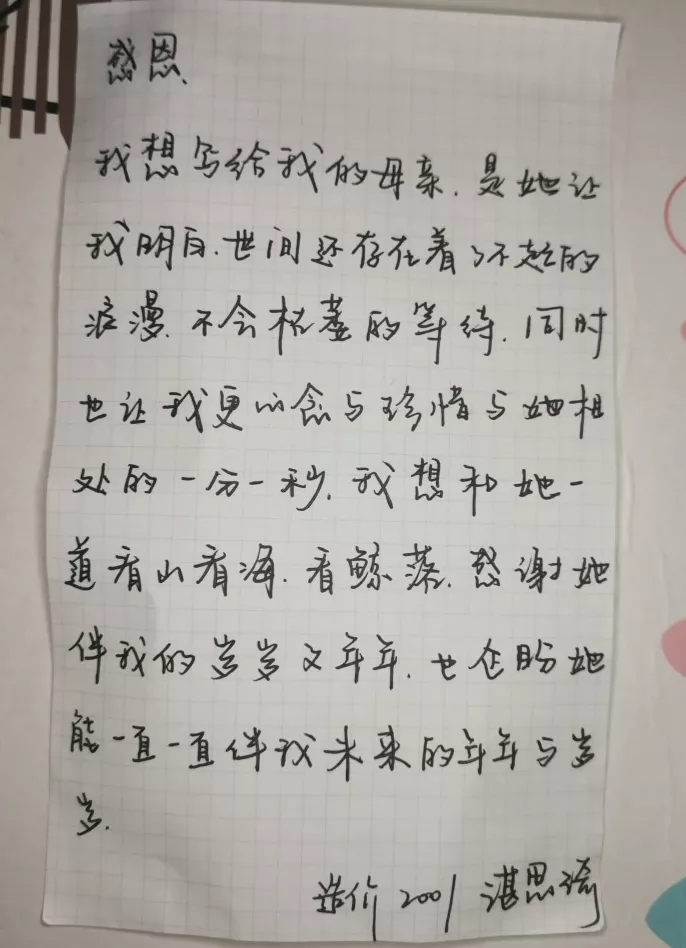 感恩.
我想写给我的母亲.是她让
我明白.世间还存在着了不起的
浪漫.不会枯萎的等待.同时
也让我更心念与珍惜与她相
处的一分一秒.我想和她一
道看山看海.看鲸落.感谢她
伴我的岁岁又年年.也企盼她
能一直一直伴我未来的年年与岁
岁.
造价2001 湛思琦